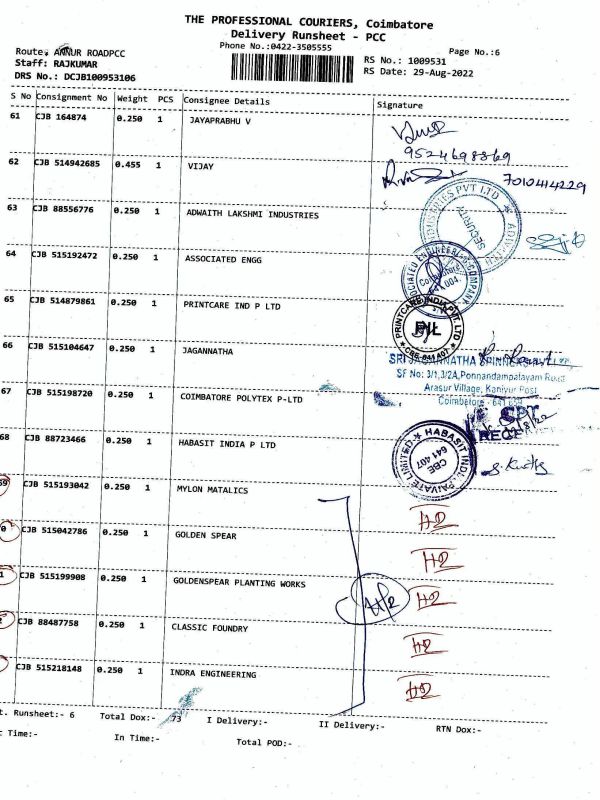 THE PROFESSIONAL COURIERS, Coimbatore
Delivery Runsheet - PCC
Phone No.:0422-3505555
Page No.:6
Route: ANNUR ROADPCC
Staff: RAJKUMAR
DRS No.: DCJB100953106
RS No.: 1009531
RS Date: 29-Aug-2022
S No Consignment No Weight PCS Consignee Details Signature
61 CJB 164874 0.250 1 JAYAPRABHU V
9524698869
62 CJB 514942685 0.455 1 VIJAY
7010414229
63 CJB 88556776 0.250 1 ADWAITH LAKSHMI INDUSTRIES
INDUSTRIES PVT LTD
SECURITY
64 CJB 515192472 0.250 1 ASSOCIATED ENGG
ASSOCIATED ENGINEERING COMPANY
Coimbatore
65 CJB 514879861 0.250 1 PRINTCARE IND P LTD
PRINTCARE INDIA PVT. LTD
PIL
CBE-641 407
66 CJB 515104647 0.250 1 JAGANNATHA
SRI JAGANNATHA SPINNERS
SF No: 3/1,3/2A,Ponnandampalayam Road
Arasur Village, Kaniyur Post
Coimbatore - 641 659
67 CJB 515198720 0.250 1 COIMBATORE POLYTEX P-LTD
68 CJB 88723466 0.250 1 HABASIT INDIA P LTD
HABASIT INDIA PRIVATE LIMITED
CBE
641 407
69 CJB 515193042 0.250 1 MYLON MATALICS
H2
0 CJB 515042786 0.250 1 GOLDEN SPEAR
H2
1 CJB 515199908 0.250 1 GOLDENSPEAR PLANTING WORKS
H2
H2
2 CJB 88487758 0.250 1 CLASSIC FOUNDRY
H2
CJB 515218148 0.250 1 INDRA ENGINEERING
H2
t. Runsheet:- 6 Total Dox:- 73 I Delivery:- II Delivery:- RTN Dox:-
Time:- In Time:- Total POD:-